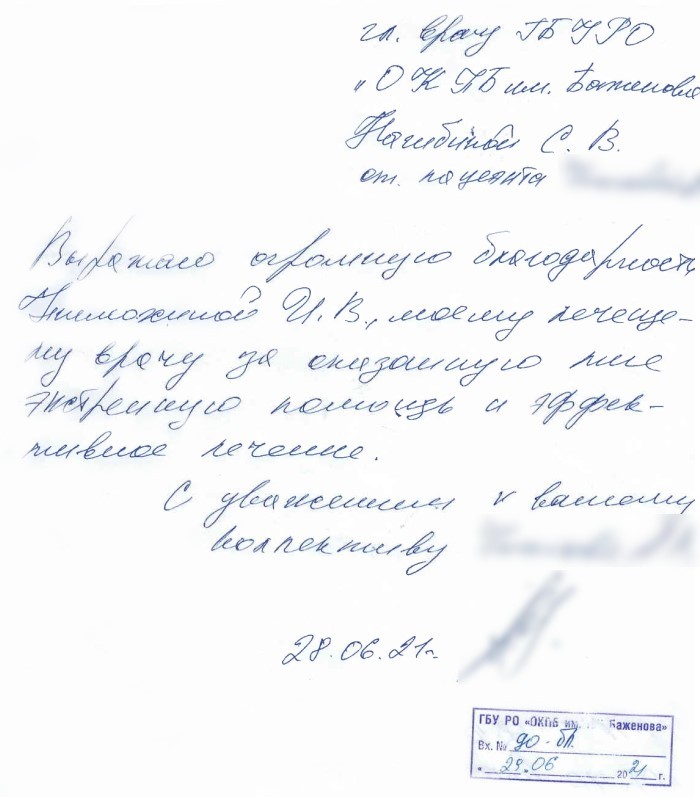 гл. врачу ГБУ РО
"ОКПБ им. Баженова
Нагибиной С. В.
от. пациента
Выражаю огромную благодарность
И. В., моему лечаще-
му врачу за оказанную мне
экстренную помощь и эффек-
тивное лечение.
С уважением к вашему
коллективу
28.06.21г.
ГБУ РО «ОКПБ им. Баженова»
Вх. № до-бл.
" 29 " 06 2021 г.